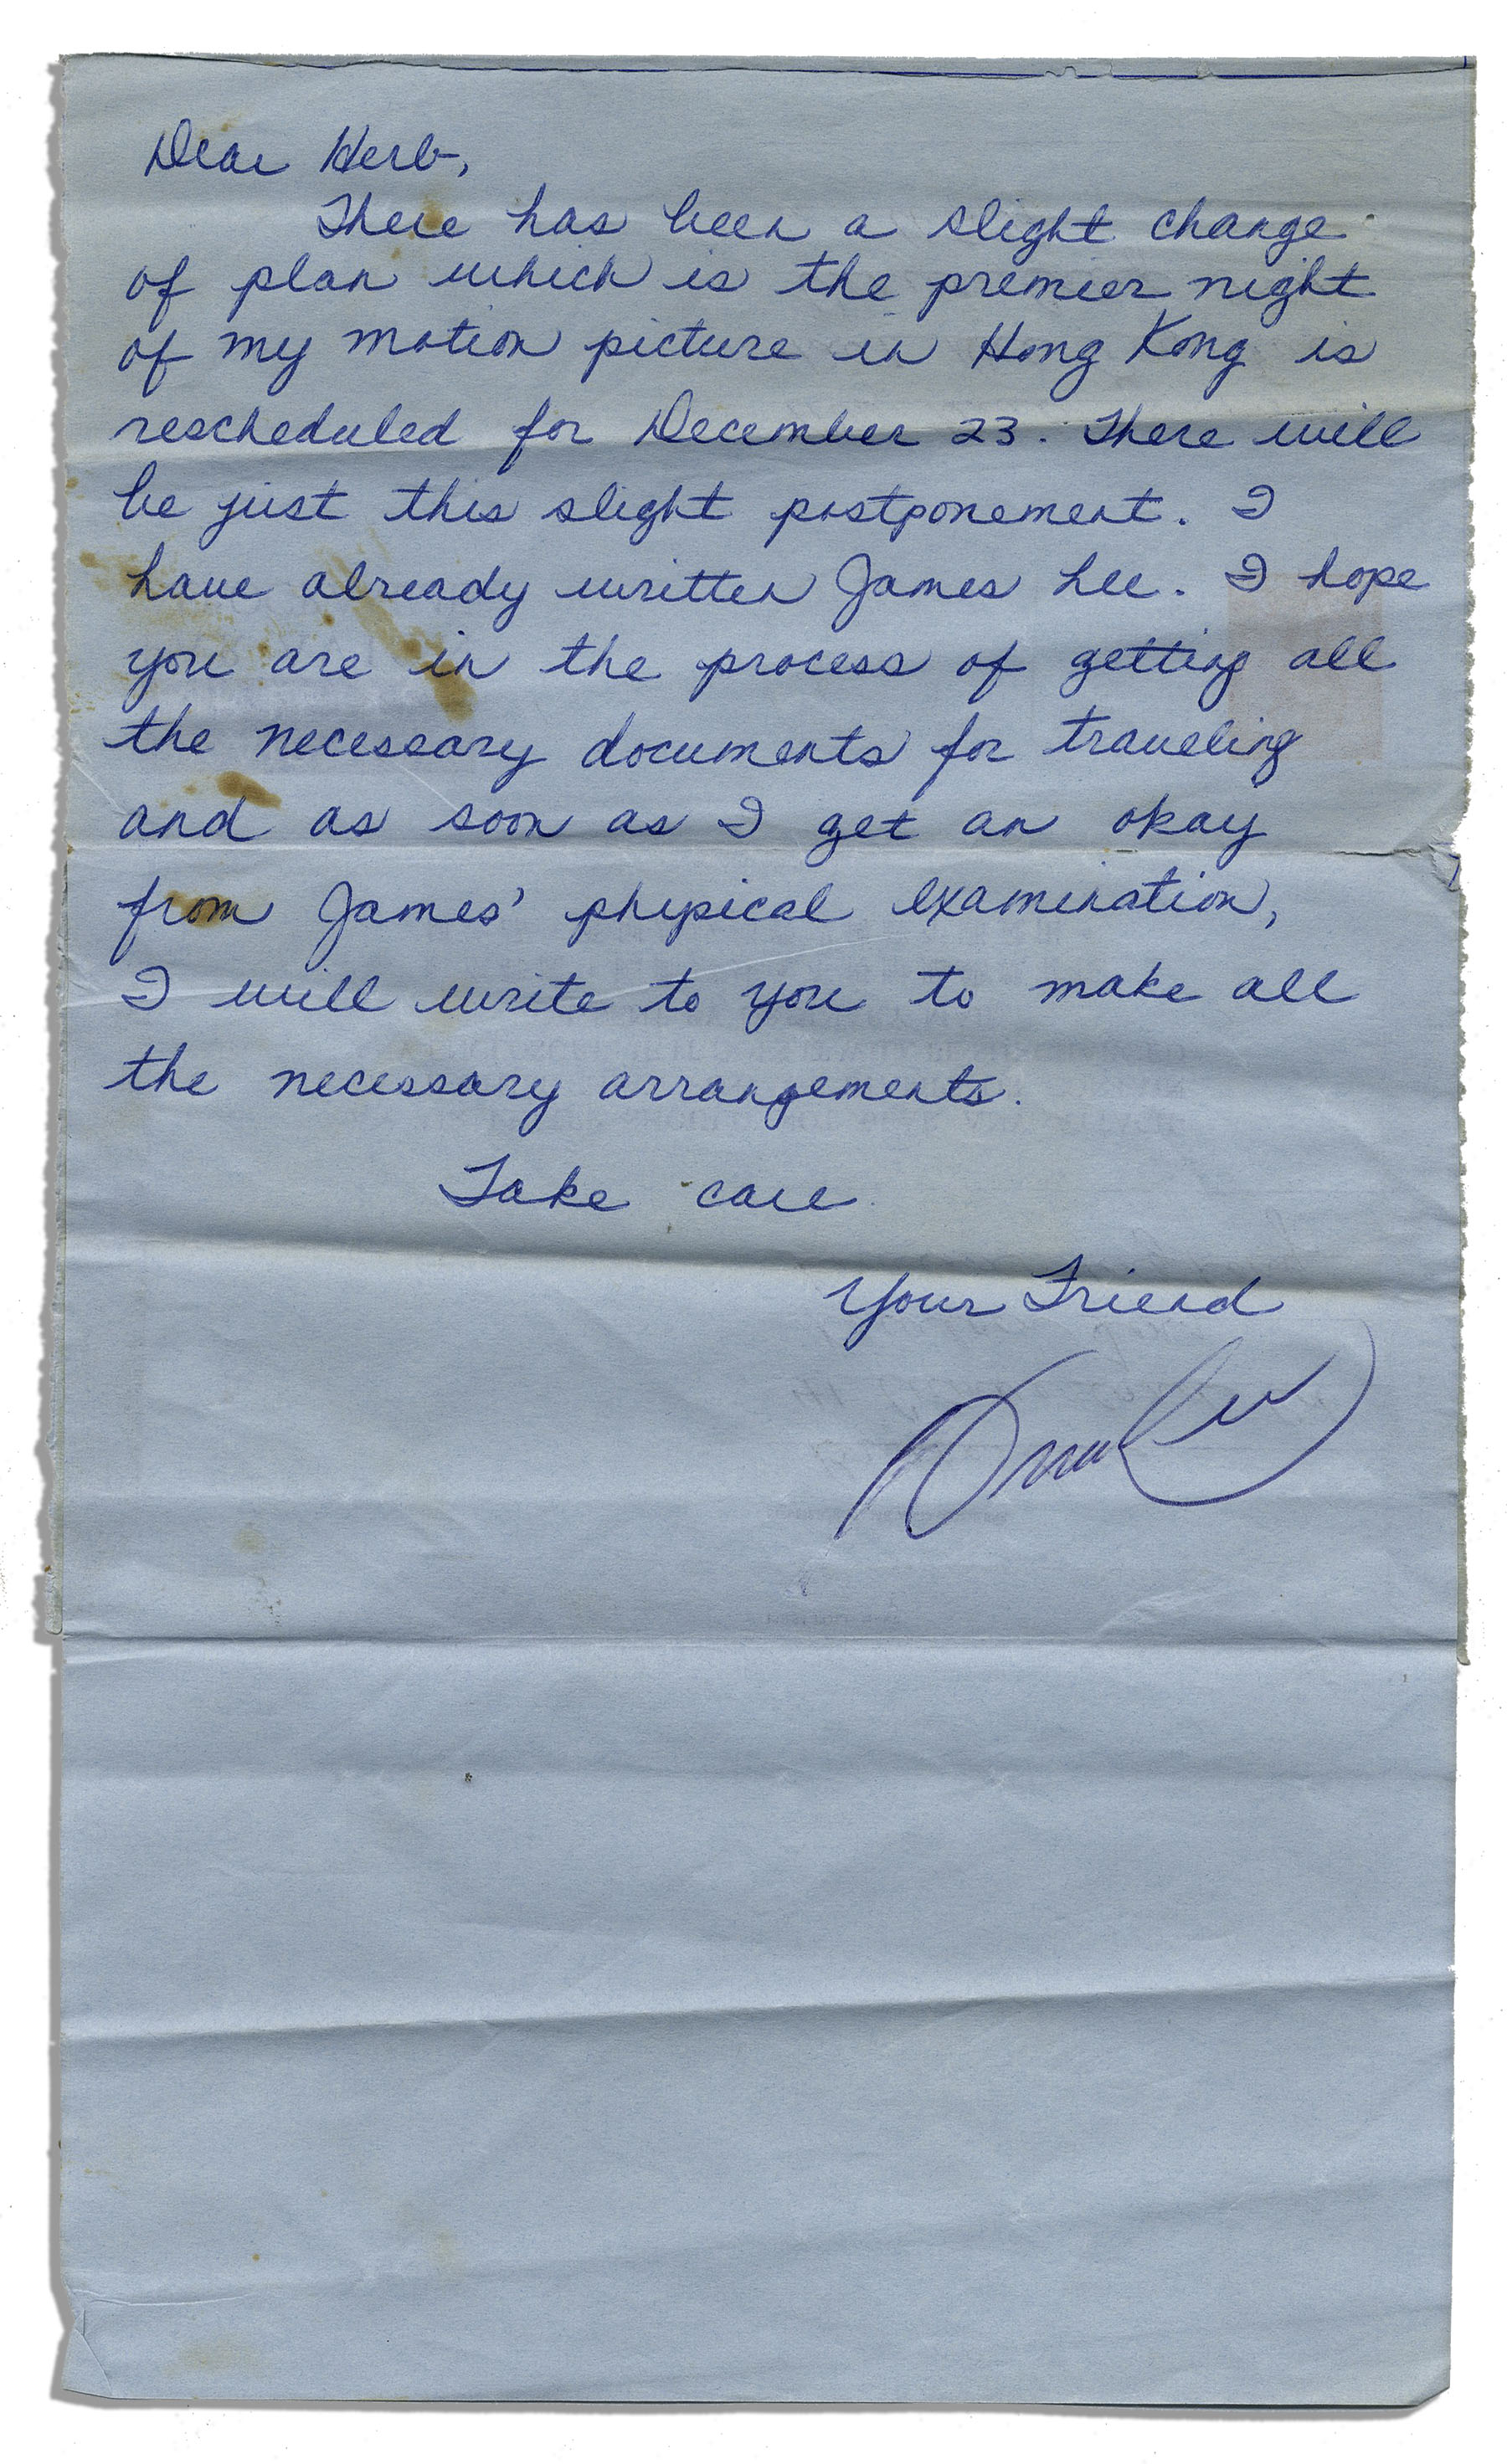 Dear Herb,
There has been a slight change
of plan which is the premier night
of my motion picture in Hong Kong is
rescheduled for December 23. There will
be just this slight postponement. I
have already written James Lee. I hope
you are in the process of getting all
the necessary documents for traveling
and as soon as I get an okay
from James' physical examination,
I will write to you to make all
the necessary arrangements.
Take care
Your Friend